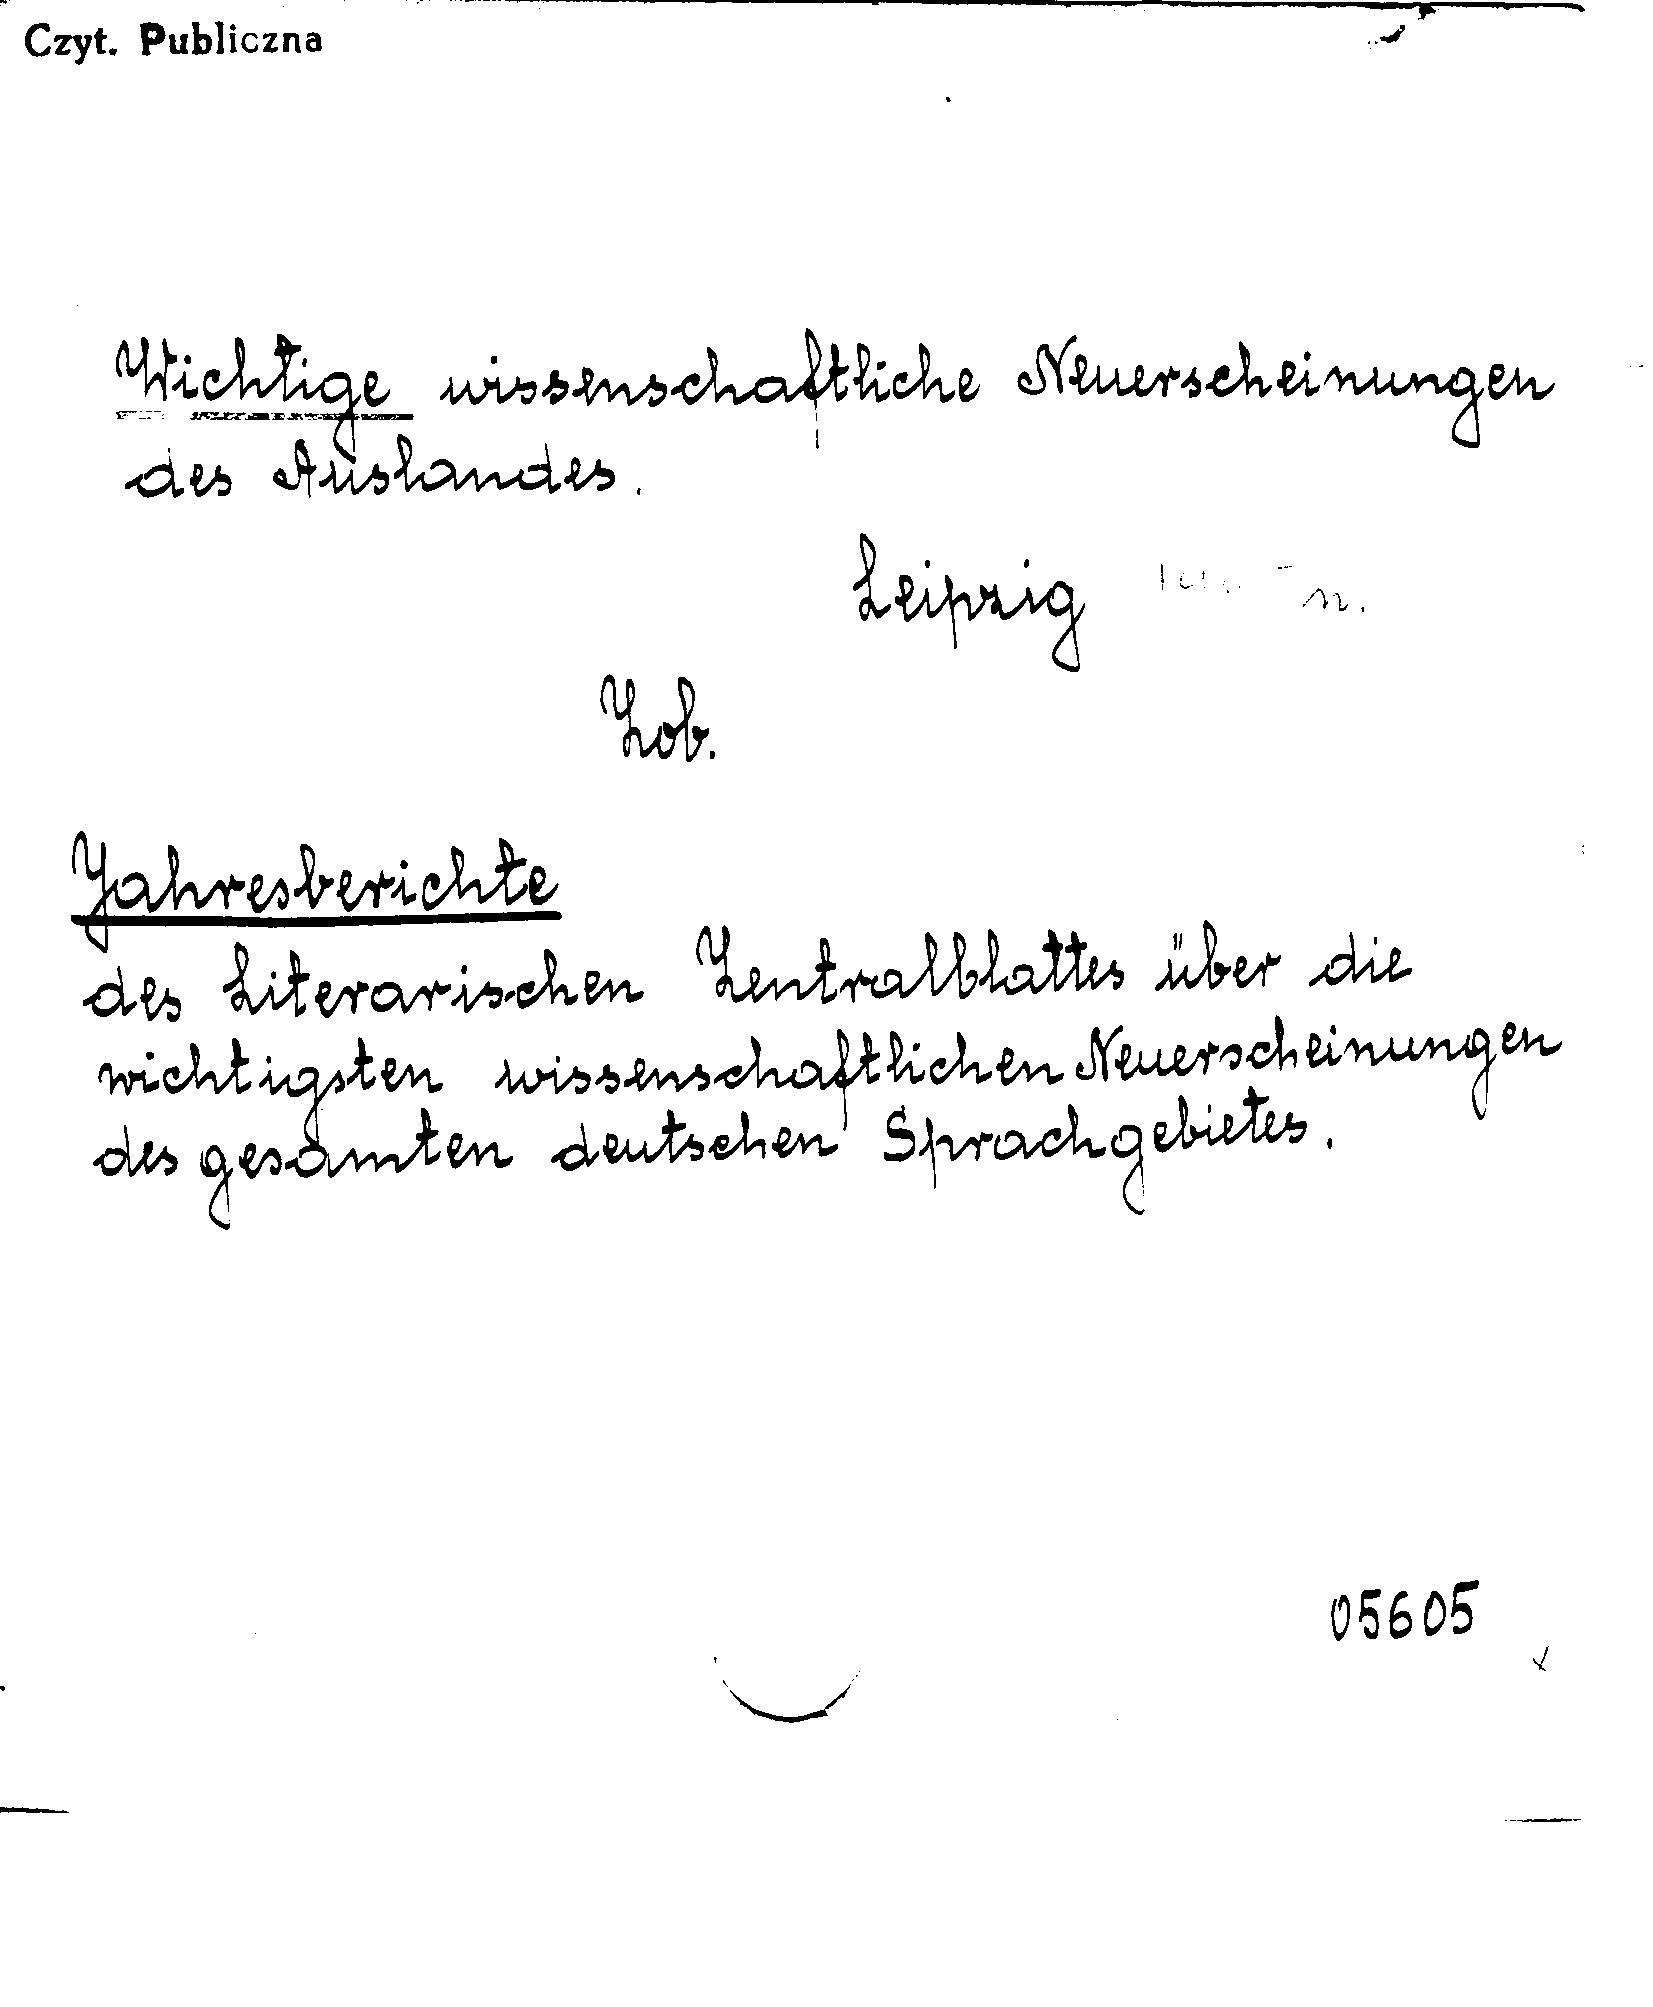 Czyt. Publiczna
Wichtige wissenschaftliche Neuerscheinungen
des Auslandes.
Leipzig
Zob.
Jahresberichte
des Literarischen Zentralblattes über die
wichtigsten wissenschaftlichen Neuerscheinungen
des gesamten deutschen Sprachgebietes.
05605